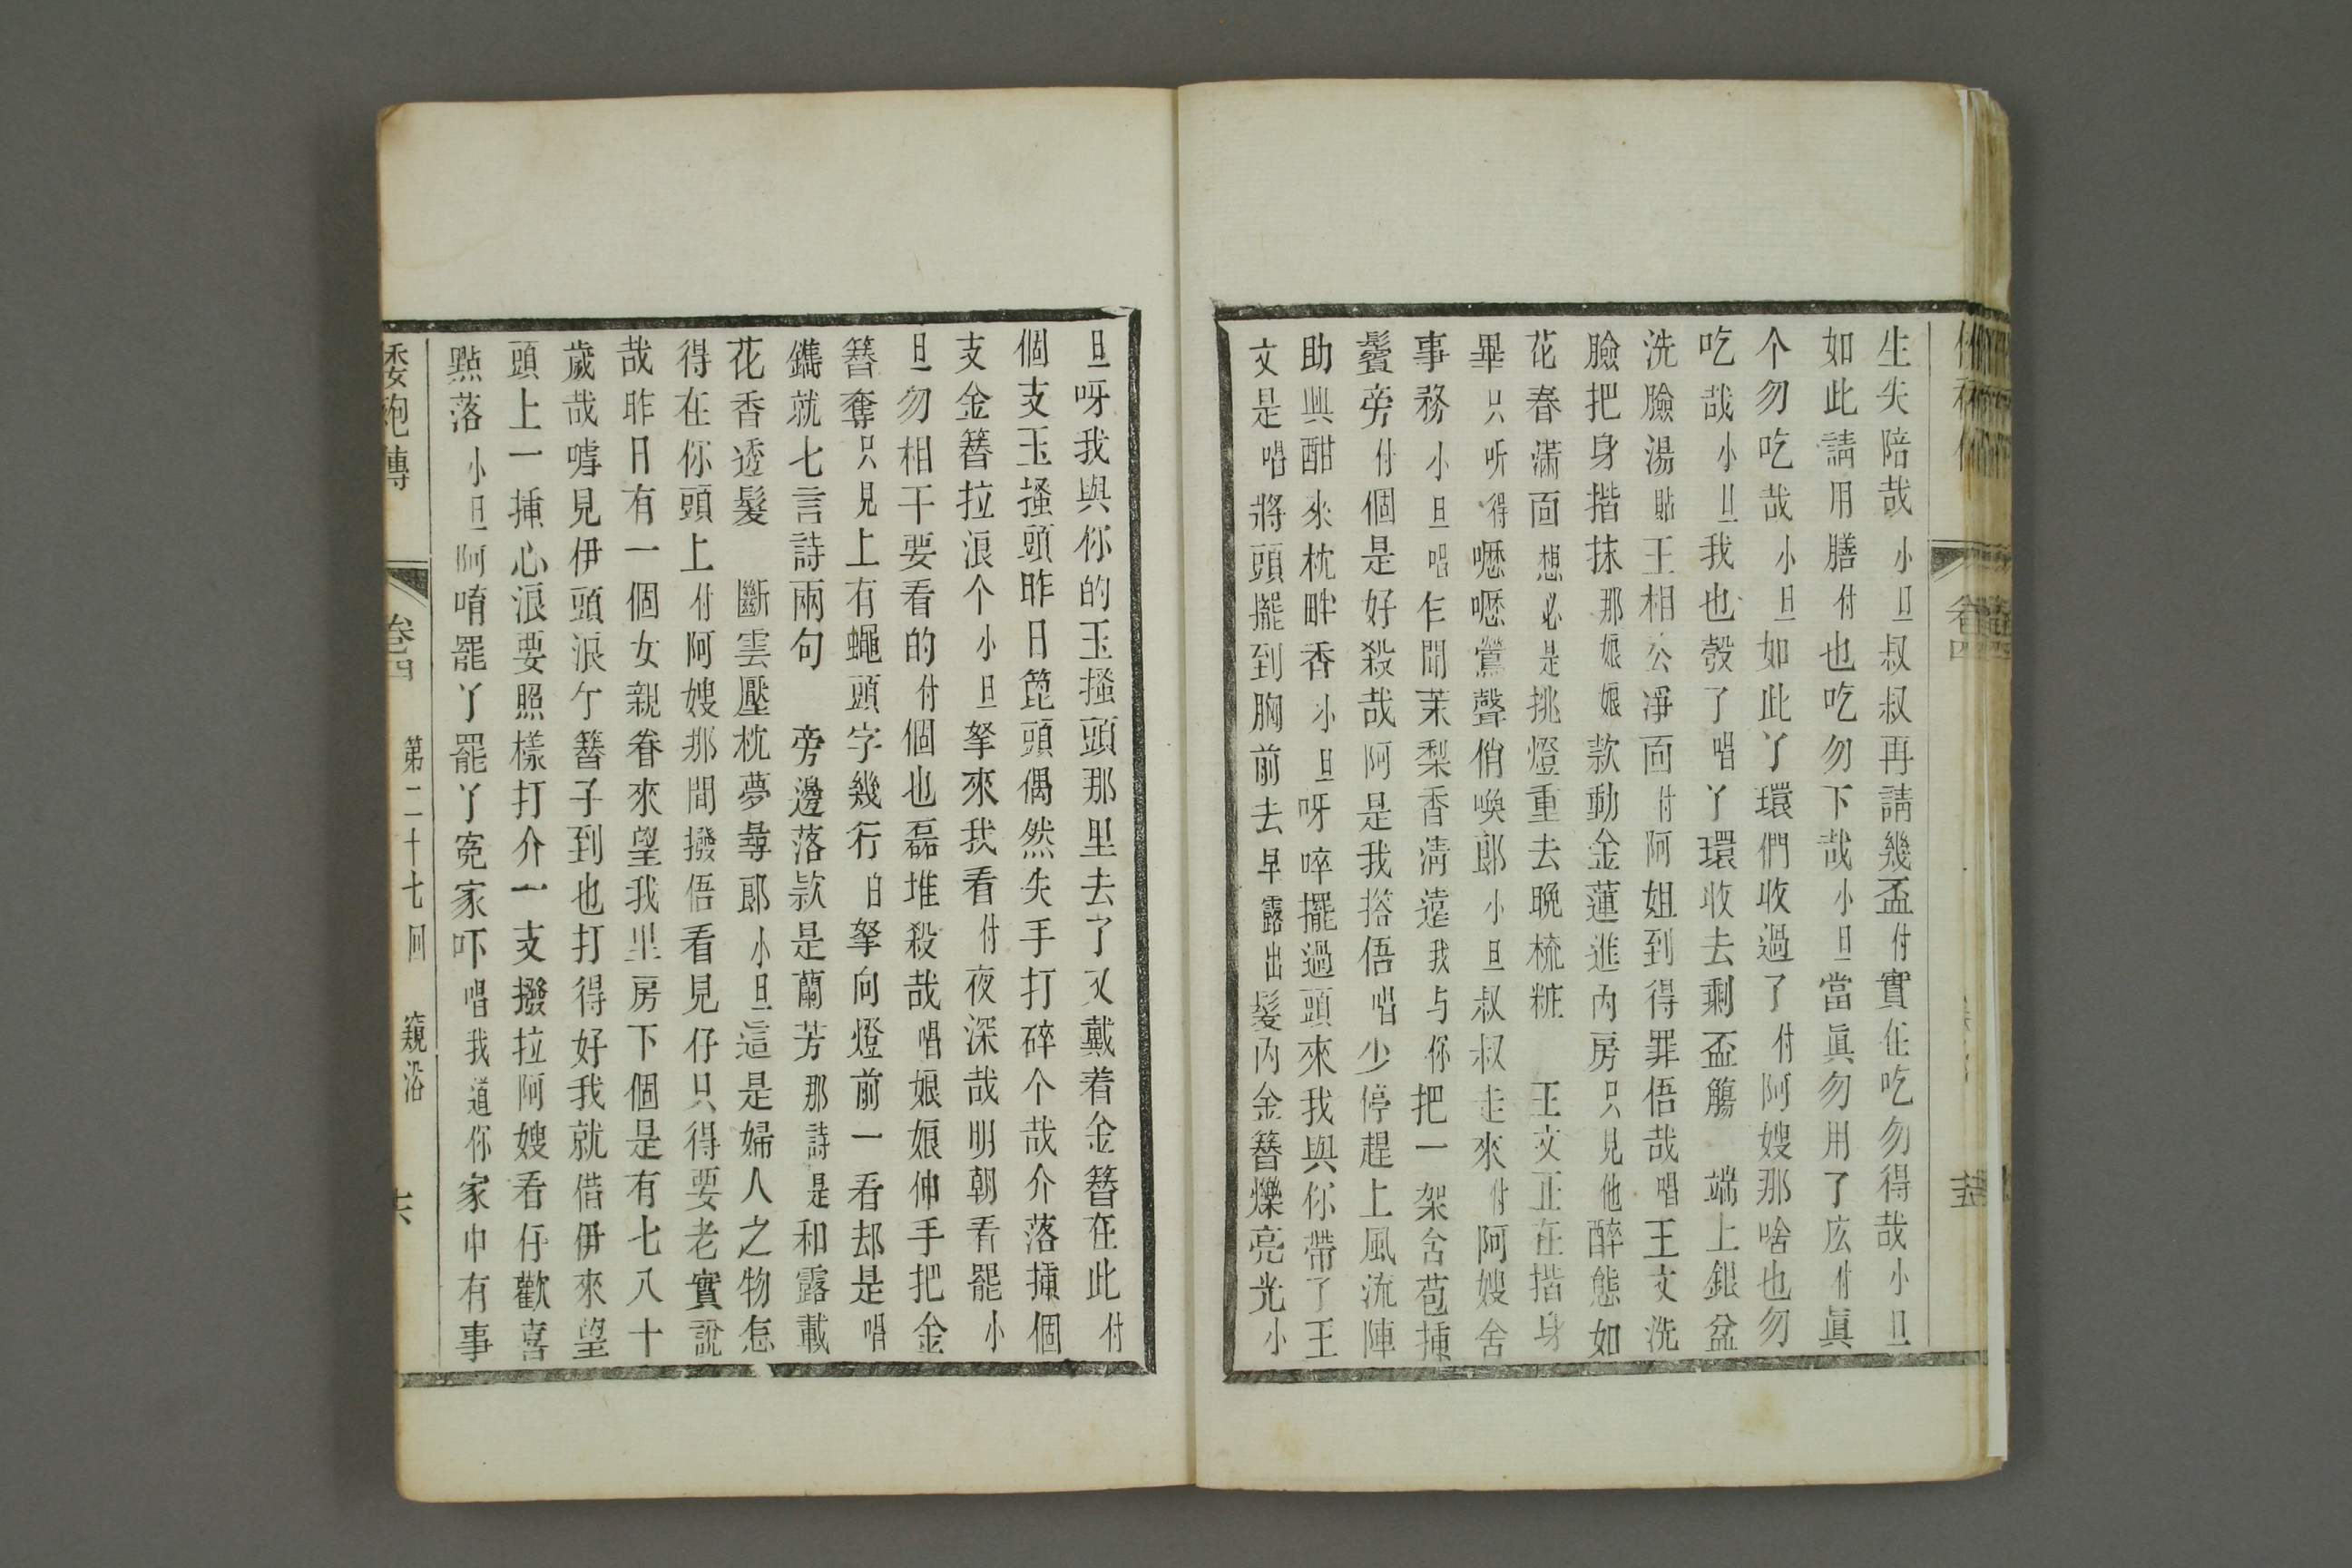 生失陪哉小旦叔叔再請幾盃付實在吃勿得哉小旦
如此請用膳付也吃勿下哉小旦當眞勿用了広付眞
个勿吃哉小旦如此丫環們收過了付阿嫂那啥也勿
吃哉小旦我也彀了唱丫環收去剩盃觴　端上銀盆
洗臉湯貼王相公凈面付阿姐到得罪俉哉唱王文洗
臉把身揩抹那娘娘款動金蓮進內房只見他醉態如
花春滿面想必是挑燈重去晚梳粧　王文正在揩身
畢只听得嚦嚦鶯聲俏喚郎小旦叔叔走來付阿嫂舍
事務小旦唱乍聞茉梨香淸遠我与你把一架舍苞揷
鬢旁付個是好殺哉阿是我搭俉唱少停趕上風流陣
助興酣來枕畔香小旦呀啐擺過頭來我與你帶了王
文是唱將頭擺到胸前去早露出髮內金簪爍亮光小
旦呀我與你的玉搔頭那里去了又戴着金簪在此付
個支玉搔頭昨日箆頭偶然失手打碎个哉介落揷個
支金簪拉浪个小旦拏來我看付夜深哉明朝看罷小
旦勿相干要看的付個也磊堆殺哉唱娘娘伸手把金
簪奪只見上有蠅頭字幾行白拏向燈前一看却是唱
鐫就七言詩兩句　旁邊落款是蘭芳那詩是和露載
花香透髮　斷雲壓枕夢尋郎小旦這是婦人之物怎
得在你頭上付阿嫂那間撥俉看見仔只得要老實說
哉昨日有一個女親眷來望我里房下個是有七八十
歲哉嘑見伊頭浪个簪子到也打得好我就借伊來望
頭上一揷心浪要照樣打介一支撥拉阿嫂看仔歡喜
點落小旦阿唷罷丫罷丫寃家吓唱我道你家中有事
倭袍傳　卷四　第二十七回　窺浴　六